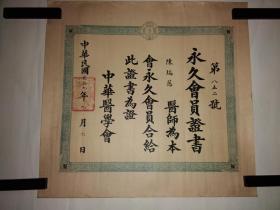 第八五二號
永久會員證書
陳瑞蓉醫師為本
會永久會員合給
此證書為證
中華醫學會
中華民國年月日